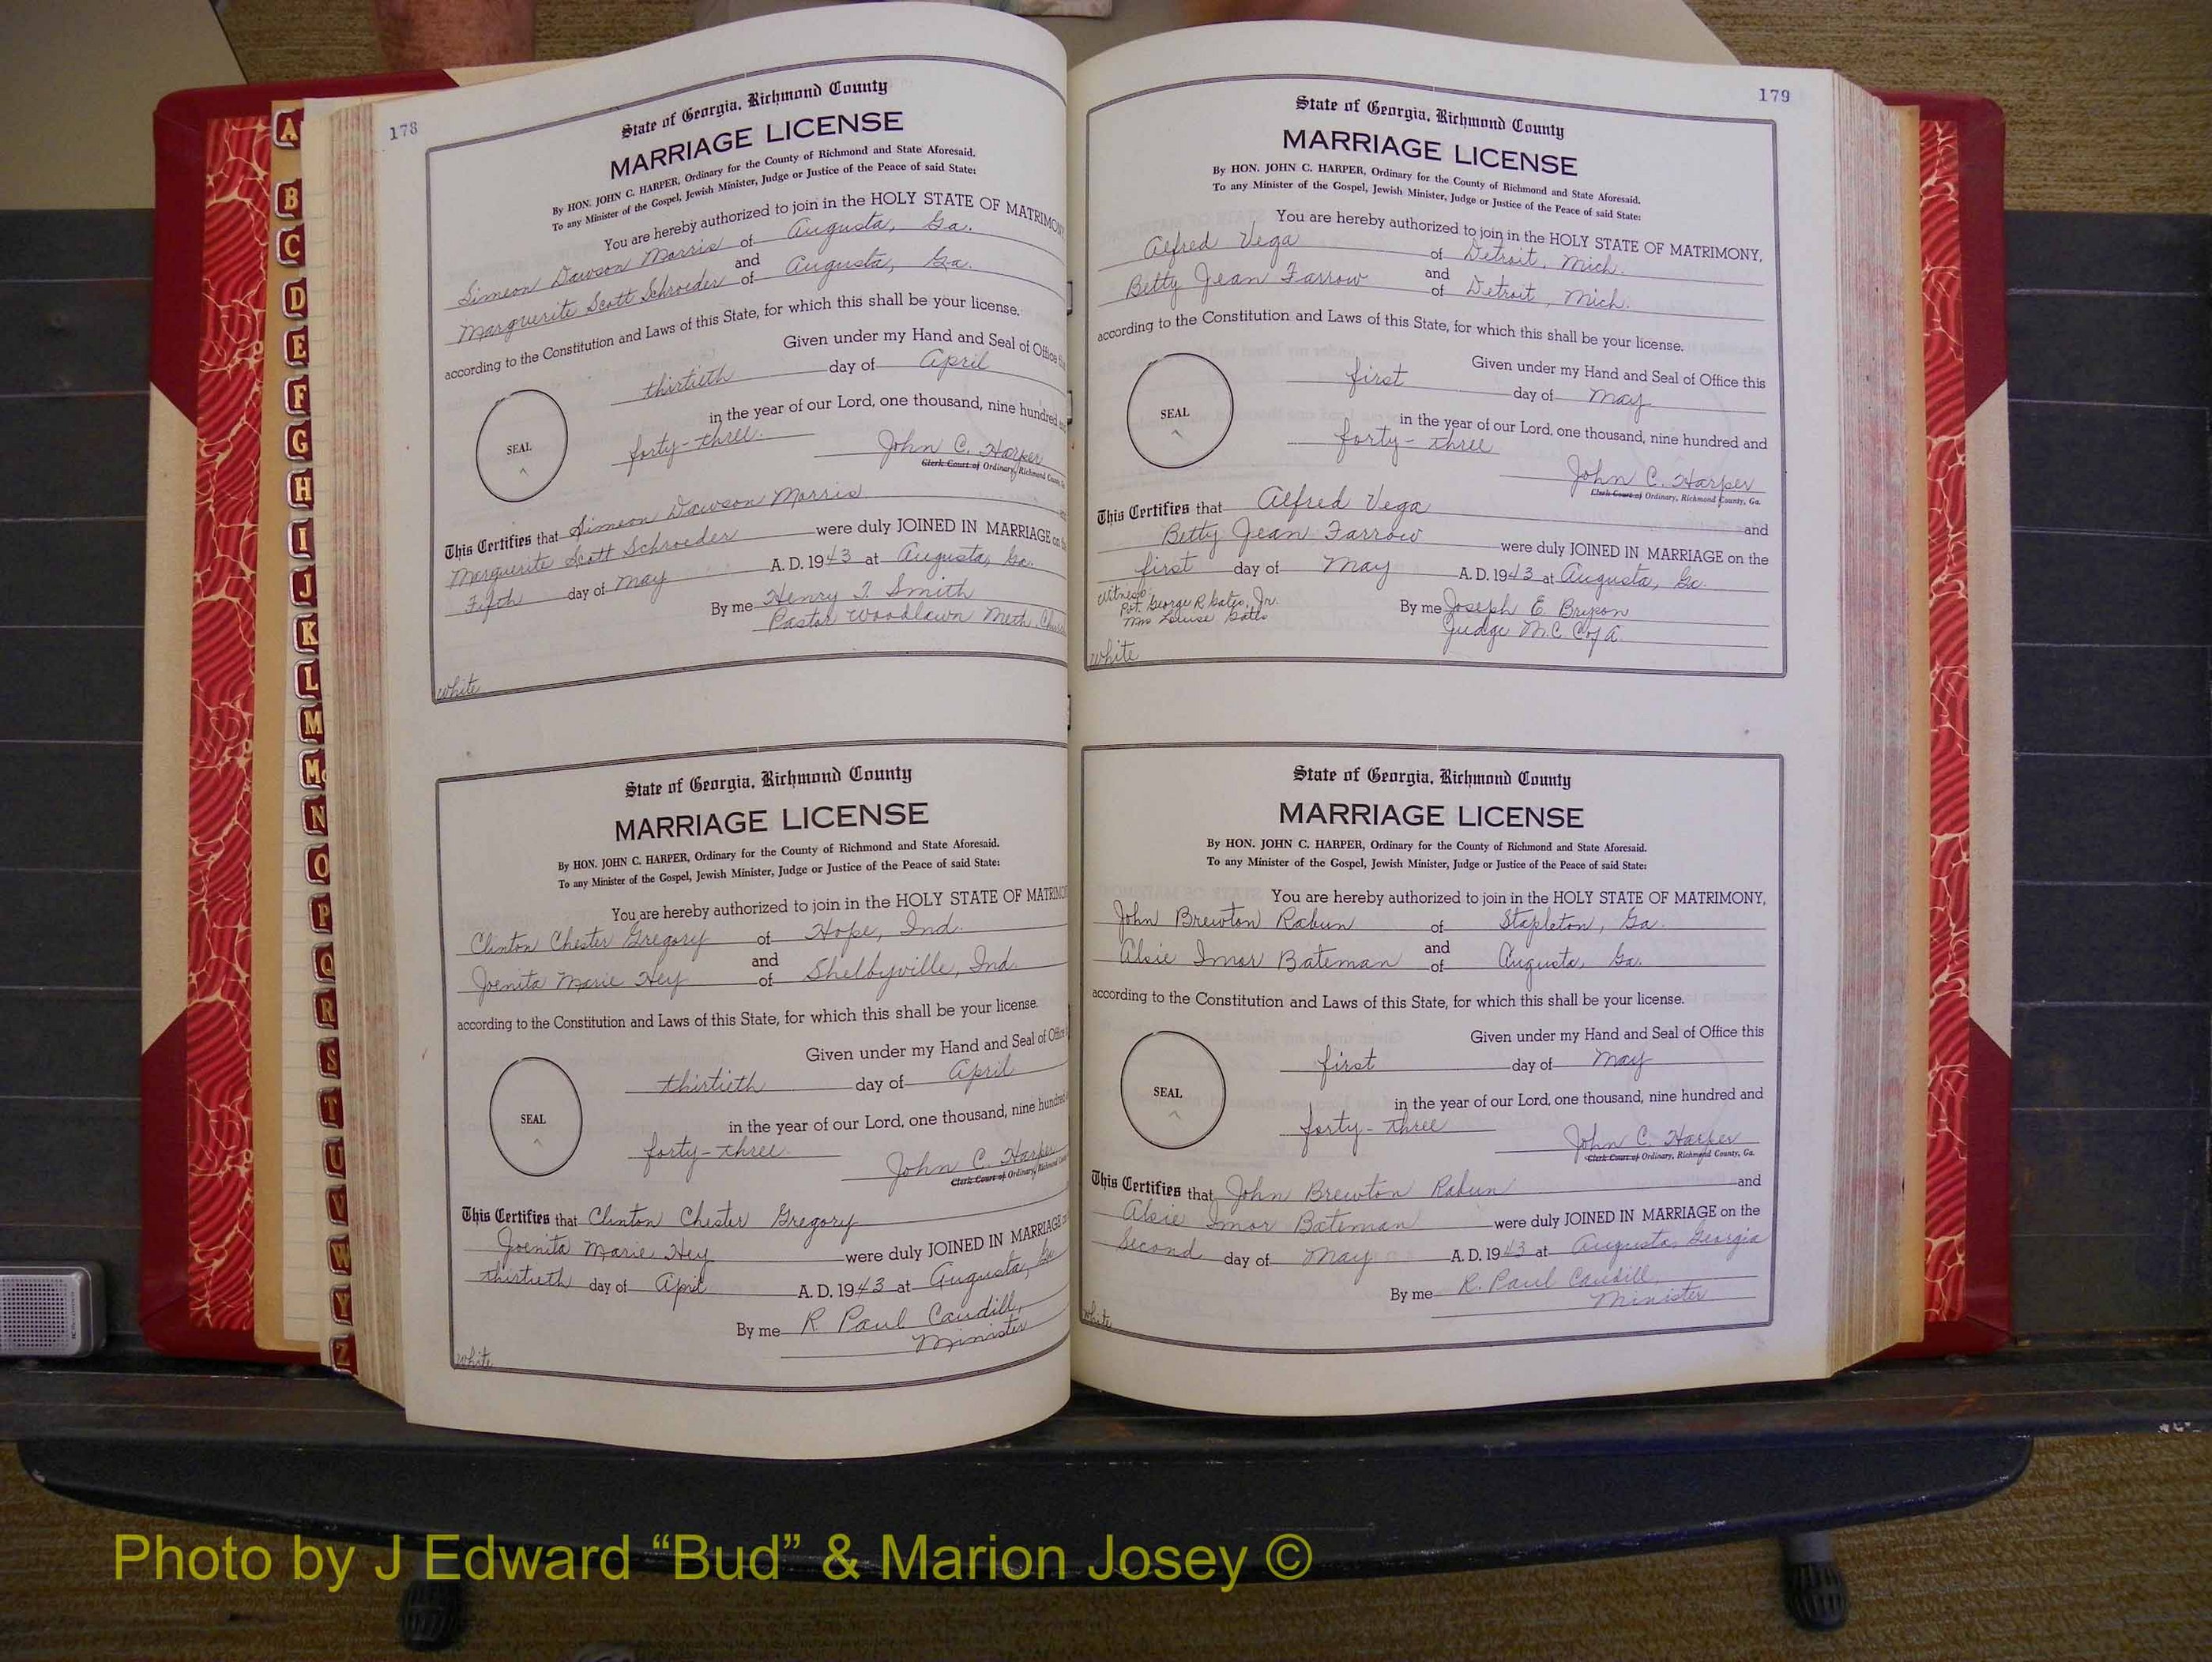 178
State of Georgia, Richmond County
MARRIAGE LICENSE
By HON. JOHN C. HARPER, Ordinary for the County of Richmond and State Aforesaid.
To any Minister of the Gospel, Jewish Minister, Judge or Justice of the Peace of said State:
You are hereby authorized to join in the HOLY STATE OF MATRIMONY
Simeon Dawson Morris of Augusta, Ga.
and
Marguerite Scott Schroeder of Augusta, Ga.
according to the Constitution and Laws of this State, for which this shall be your license.
Given under my Hand and Seal of Office this
thirtieth day of April
in the year of our Lord, one thousand, nine hundred and
forty-three.
SEAL
John C. Harper
Clerk Court of Ordinary, Richmond County, Ga
This Certifies that Simeon Dawson Morris and
Marguerite Scott Schroeder were duly JOINED IN MARRIAGE on the
Fifth day of May A. D. 1943 at Augusta, Ga.
By me Henry T. Smith
Pastor Woodlawn Meth. Church
white
State of Georgia, Richmond County
MARRIAGE LICENSE
By HON. JOHN C. HARPER, Ordinary for the County of Richmond and State Aforesaid.
To any Minister of the Gospel, Jewish Minister, Judge or Justice of the Peace of said State:
You are hereby authorized to join in the HOLY STATE OF MATRIMO
Clinton Chester Gregory of Hope, Ind.
and
Joenita Marie Hey of Shelbyville, Ind.
according to the Constitution and Laws of this State, for which this shall be your license.
Given under my Hand and Seal of Office
thirtieth day of April
in the year of our Lord, one thousand, nine hundred
forty-three.
SEAL
John C. Harper
Clerk Court of Ordinary, Richmond County
This Certifies that Clinton Chester Gregory
Joenita Marie Hey were duly JOINED IN MARRIAGE on
thirtieth day of April A. D. 1943 at Augusta, Ga
By me R. Paul Caudill,
Minister
white
179
State of Georgia, Richmond County
MARRIAGE LICENSE
By HON. JOHN C. HARPER, Ordinary for the County of Richmond and State Aforesaid.
To any Minister of the Gospel, Jewish Minister, Judge or Justice of the Peace of said State:
You are hereby authorized to join in the HOLY STATE OF MATRIMONY,
Alfred Vega of Detroit, Mich.
and
Betty Jean Farrow of Detroit, Mich.
according to the Constitution and Laws of this State, for which this shall be your license.
Given under my Hand and Seal of Office this
first day of May
in the year of our Lord, one thousand, nine hundred and
forty-three
SEAL
John C. Harper
Clerk Court of Ordinary, Richmond County, Ga.
This Certifies that Alfred Vega and
Betty Jean Farrow were duly JOINED IN MARRIAGE on the
first day of May A. D. 1943 at Augusta, Ga.
Witness:
Pvt. George R. Gates, Jr.
Mrs Louise Gates
By me Joseph E. Bryson
Judge M.C. C of A.
white
State of Georgia, Richmond County
MARRIAGE LICENSE
By HON. JOHN C. HARPER, Ordinary for the County of Richmond and State Aforesaid.
To any Minister of the Gospel, Jewish Minister, Judge or Justice of the Peace of said State:
You are hereby authorized to join in the HOLY STATE OF MATRIMONY,
John Brewton Rabun of Stapleton, Ga.
and
Alsie Imor Bateman of Augusta, Ga.
according to the Constitution and Laws of this State, for which this shall be your license.
Given under my Hand and Seal of Office this
first day of May
in the year of our Lord, one thousand, nine hundred and
forty-three
SEAL
John C. Harper
Clerk Court of Ordinary, Richmond County, Ga.
This Certifies that John Brewton Rabun and
Alsie Imor Bateman were duly JOINED IN MARRIAGE on the
Second day of May A. D. 1943 at Augusta, Georgia
By me R. Paul Caudill,
Minister
white
A
B
C
D
E
F
G
H
I
J
K
L
M
Mc
N
O
P
Q
R
S
T
U
V
W
Y
Z
Photo by J Edward “Bud” & Marion Josey ©